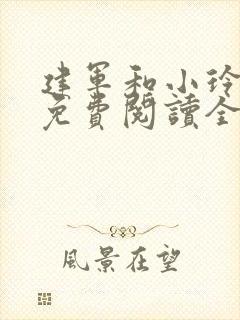 建軍和小玲
免費閱讀全
風景在望